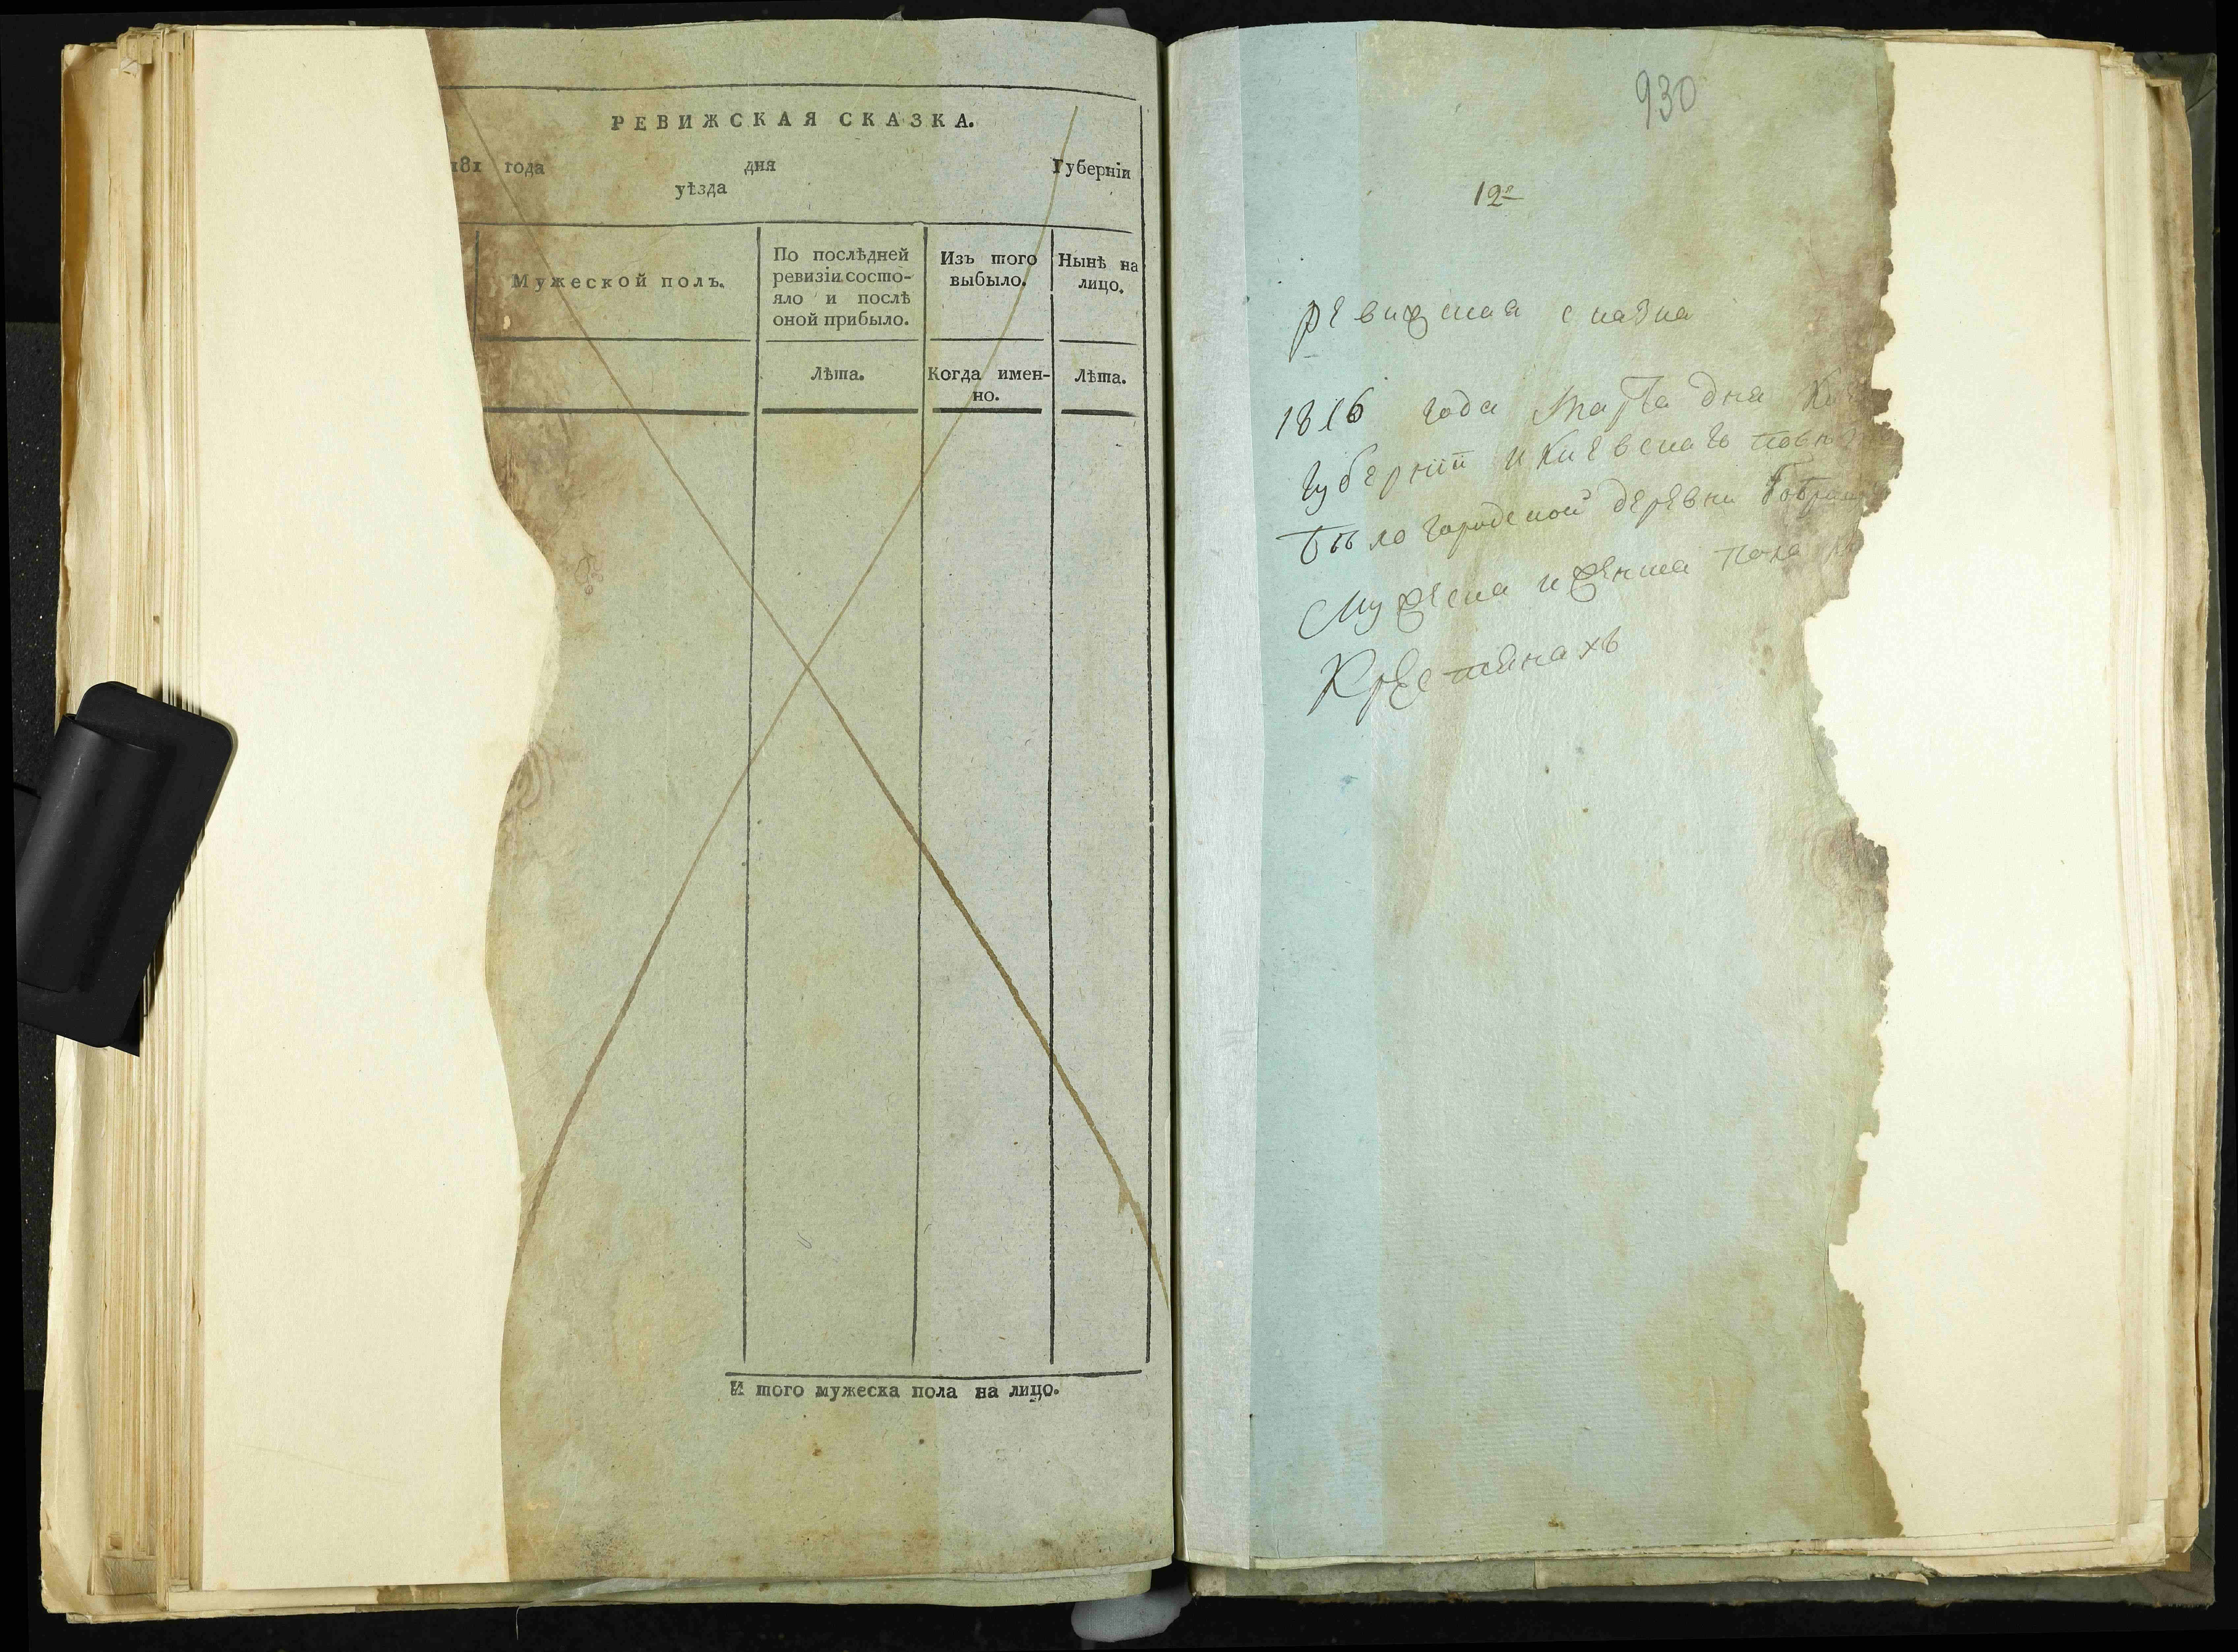 РЕВИЖСКАЯ СКАЗКА.
181 года дня Губерніи
уѣзда
Мужеской полъ.
По послѣдней
ревизіи состо-
яло и послѣ
оной прибыло.
Изъ того
выбыло.
Нынѣ на
лицо.
Лѣта.
Когда имен-
но.
Лѣта.
И того мужеска пола на лицо.
930
12
ревижская сказка
1816 года Марта дня
Губерніи и Киевскаго
Белогородской деревни
Мужеска и женска пола
Крестянахъ